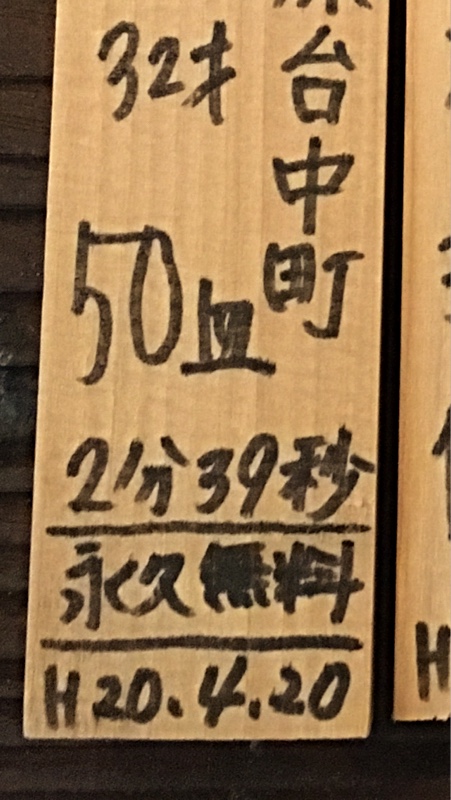 台中町
32才
50皿
2分39秒
永久無料
H20.4.20
H